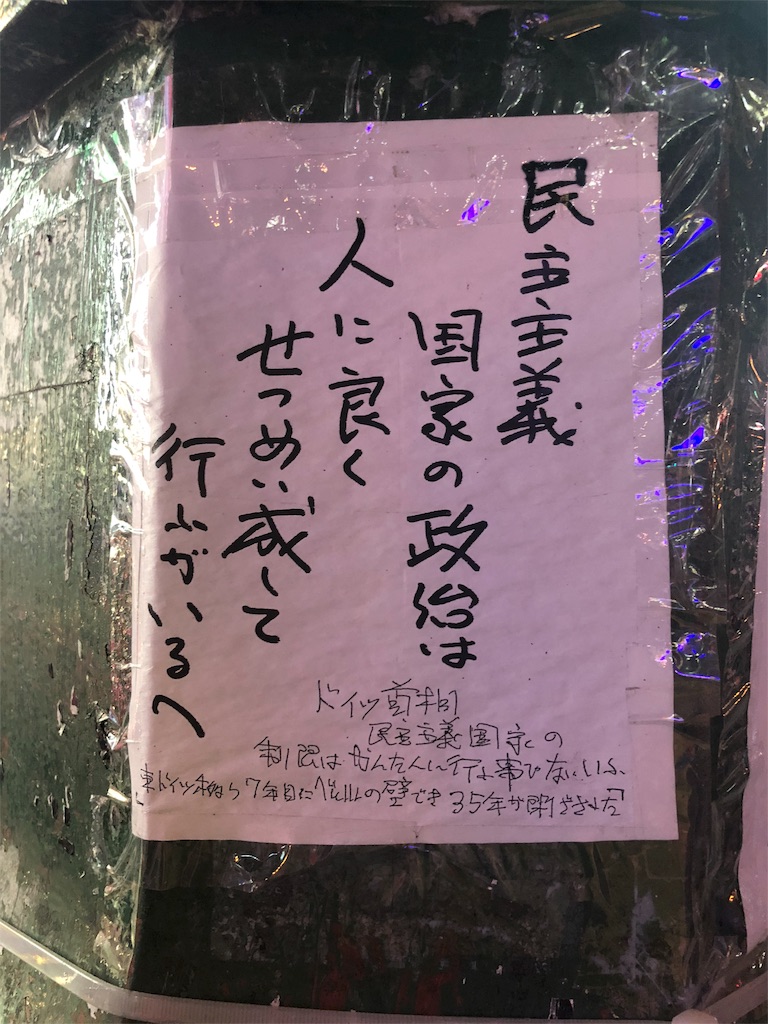 民主主義
国家の政治は
人に良く
せつめい成して
行ふがいるへ
ドイツ首相
民主主義国家の
制限はかんたんに行 事 ない
「東ドイツ 7年目にベルリンの壁でき 35年か閉ざされた」